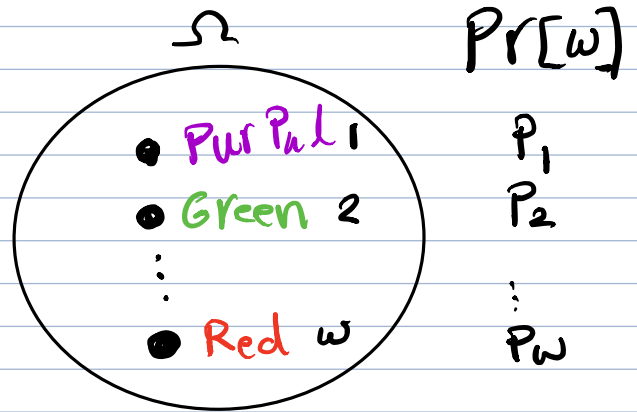 Ω Pr[w]
Purpul 1 P1
Green 2 P2
Red w Pw